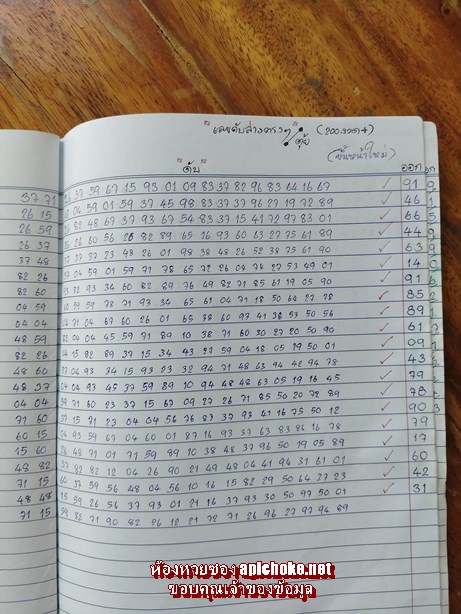 "เลขดับล่างตรงๆ" (200งวด+)
ตุ๊ย
(ขึ้นหน้าใหม่)
"ดับ" ออก
37 71 37 59 67 15 93 01 09 83 37 82 96 83 64 16 67 ✓ 91
26 15 04 59 01 59 37 45 98 83 37 37 96 27 19 72 89 ✓ 46
26 59 82 48 67 37 93 67 54 83 37 15 41 72 97 83 01 ✓ 66
26 37 26 60 56 26 82 89 65 16 93 60 63 27 75 61 89 ✓ 44
37 48 37 37 23 48 26 01 98 38 48 26 52 38 75 61 90 ✓ 63
82 26 04 59 01 59 71 78 65 72 26 04 78 27 53 49 01 ✓ 14
82 60 82 93 34 60 82 89 76 49 82 71 85 61 19 05 90 ✓ 91
04 59 59 78 71 93 34 65 61 04 71 18 50 64 27 78 ✓ 85
04 04 71 04 67 60 26 01 65 38 60 97 41 38 53 50 56 ✓ 89
48 59 82 04 04 45 59 71 89 10 38 71 60 30 27 20 50 90 ✓ 61
82 26 04 15 82 89 37 15 34 43 27 59 04 18 05 19 50 01 ✓ 09
48 60 37 04 93 34 15 93 23 32 94 71 48 63 94 42 94 78 ✓ 43
48 37 04 04 93 45 37 59 89 10 94 48 48 63 05 19 16 45 ✓ 79
04 04 71 60 23 37 15 67 09 27 26 71 85 50 20 72 89 ✓ 78
71 60 37 15 71 23 04 04 56 76 83 37 93 41 16 75 50 12 ✓ 90
60 15 04 93 59 67 04 60 01 87 16 93 37 63 83 86 16 78 ✓ 79
15 60 26 48 71 01 71 59 89 10 38 48 37 96 50 19 05 89 ✓ 17
48 82 37 82 82 12 04 26 90 21 49 48 04 41 94 31 61 01 ✓ 60
71 15 60 37 59 56 48 04 56 10 16 15 82 29 50 64 27 23 ✓ 42
48 48 15 59 26 56 37 93 01 21 16 37 93 30 50 97 50 01 ✓ 31
71 15 59 82 71 90 82 26 12 21 72 71 26 96 27 97 94 89
ห้องหวยซอง apichoke.net
ขอบคุณเจ้าของข้อมูล